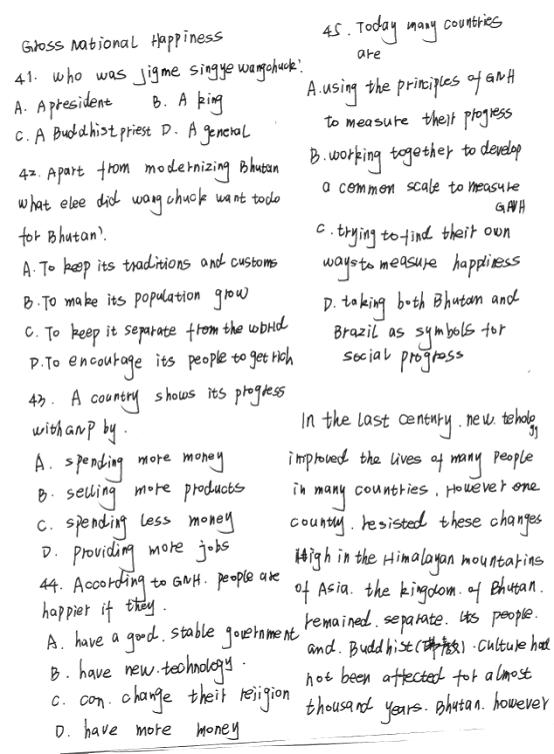 Gross National Happiness
41. who was Jigme singye wangchuck?
A. A president B. A king
C. A Buddhist priest D. A general
42. Apart from modernizing Bhutan
what elee did wangchuck want todo
for Bhutan?
A. To keep its traditions and customs
B. To make its population grow
C. To keep it separate from the world
D. To encourage its people to get rich
43. A country shows its progress
with GNP by .
A. spending more money
B. selling more products
C. spending less money
D. providing more jobs
44. According to GNH. people are
happier if they .
A. have a good. stable government
B. have new. technology.
C. can. change their rejigion
D. have more money
45. Today many countries
are
A. using the principles of GNH
to measure their progress
B. working together to develop
a common scale to measure
GNH
C. trying to find their own
ways to measure happiness
D. taking both Bhutan and
Brazil as symbols for
social progress
In the last century. new. teholog
improved the lives of many people
in many countries. However one
country. resisted these changes
High in the Himalayan mountarins
of Asia. the kingdom. of Bhutan.
remained. separate. Its people.
and. Buddhist (佛教). culture had
not been affected for almost
thousand years. Bhutan. however